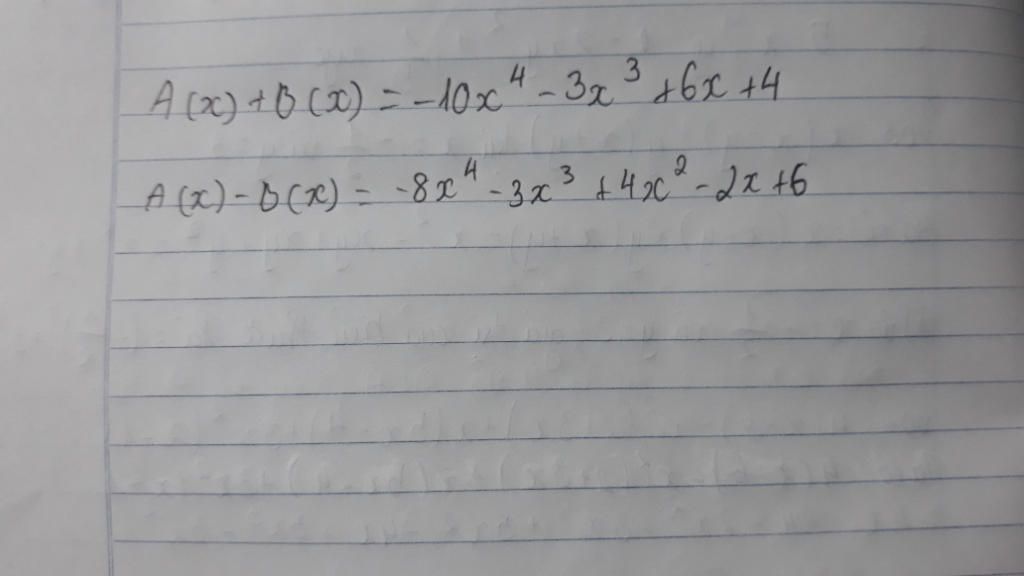 A(x)+B(x) = -10x⁴ - 3x³ +6x +4
A(x)-B(x) = -8x⁴ - 3x³ +4x² - 2x +6